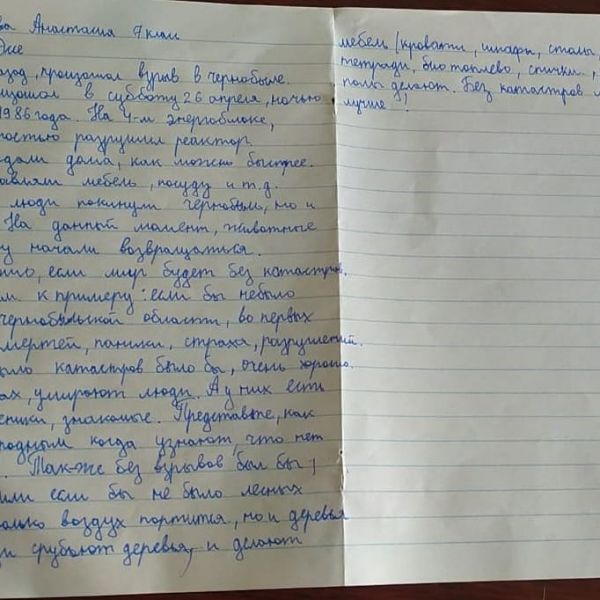 ва Анастасия 7 класс
азад, произошол взрыв в чернобыле.
изошол в субботу 26 апреля, ночью
1986 года. На 4-м энергоблоке,
остью разрушил реактор.
идали дома, как можно быстрее.
авляли мебель, посуду и т.д.
люди покинули чернобыль, но и
На данный момент, животные
у начали возвращаться.
что, если мир будет без катастров.
м к примеру: если бы небыло
чернобыльской области, во первых
мертей, паники, страха, разрушений.
ыло катастров было бы, очень хорошо.
ах, умирают люди. А у них есть
еники, знакомые. Представте, как
родным когда узнают, что нет
. Так-же без взрывов, был бы
или если бы не было лесных
олько воздух портится, но и деревья
ди срубают деревья, и делают
мебель (кровати, шкафы, столы,
тетради, биотопливо, спички.,
полы делают. Без катастров
лучше!